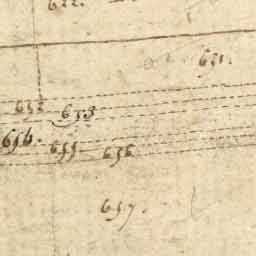 622.
651.
652 653
654. 655 656
657.